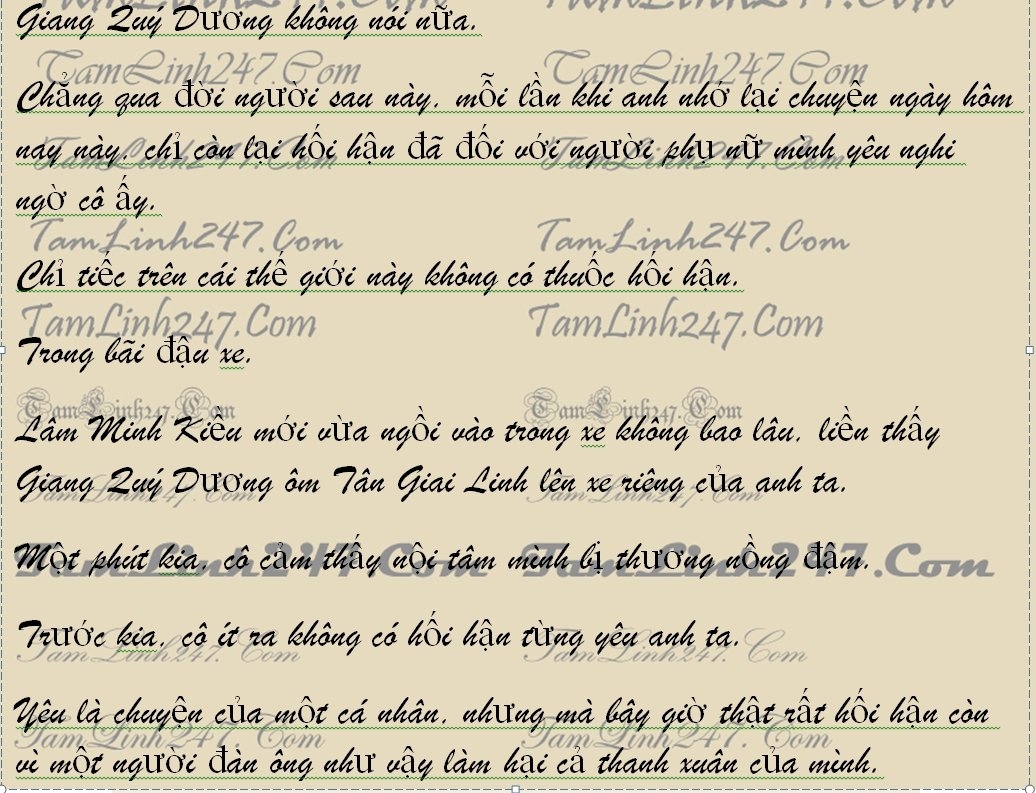 Giang Quý Dương không nói nữa.
TamLinh247.Com TamLinh247.Com
Chẳng qua đời người sau này, mỗi lần khi anh nhớ lại chuyện ngày hôm
nay này, chỉ còn lại hối hận đã đối với người phụ nữ mình yêu nghi
TamLinh247.Com TamLinh247.Com
ngờ cô ấy.
TamLinh247.Com TamLinh247.Com
Chỉ tiếc trên cái thế giới này không có thuốc hối hận.
TamLinh247.Com TamLinh247.Com
Trong bãi đậu xe.
TamLinh247.Com TamLinh247.Com
Lâm Minh Kiều mới vừa ngồi vào trong xe không bao lâu, liền thấy
Giang Quý Dương ôm Tân Giai Linh lên xe riêng của anh ta.
TamLinh247.Com TamLinh247.Com
Một phút kia, cô cảm thấy nội tâm mình bị thương nồng đậm.
TamLinh247.Com TamLinh247.Com
Trước kia, cô ít ra không có hối hận từng yêu anh ta.
TamLinh247.Com TamLinh247.Com
Yêu là chuyện của một cá nhân, nhưng mà bây giờ thật rất hối hận còn
TamLinh247.Com TamLinh247.Com
vì một người đàn ông như vậy làm hại cả thanh xuân của mình.